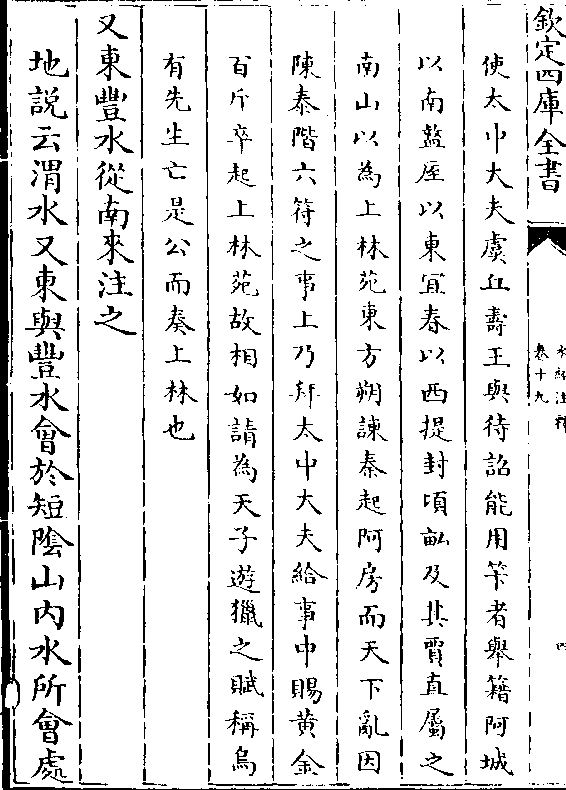 欽定四庫全書
卷十九
四
使太中大夫虞丘壽王與待詔能用筭者舉籍阿城
以南盩厔以東宜春以西提封頃畝及其賈直屬之
南山以為上林苑東方朔諫秦起阿房而天下亂因
陳泰階六符之事上乃拜太中大夫給事中賜黃金
百斤卒起上林苑故相如請為天子遊獵之賦稱烏
有先生亡是公而奏上林也
又東豐水從南來注之
地說云渭水又東與豐水會於短陰山内水所會處